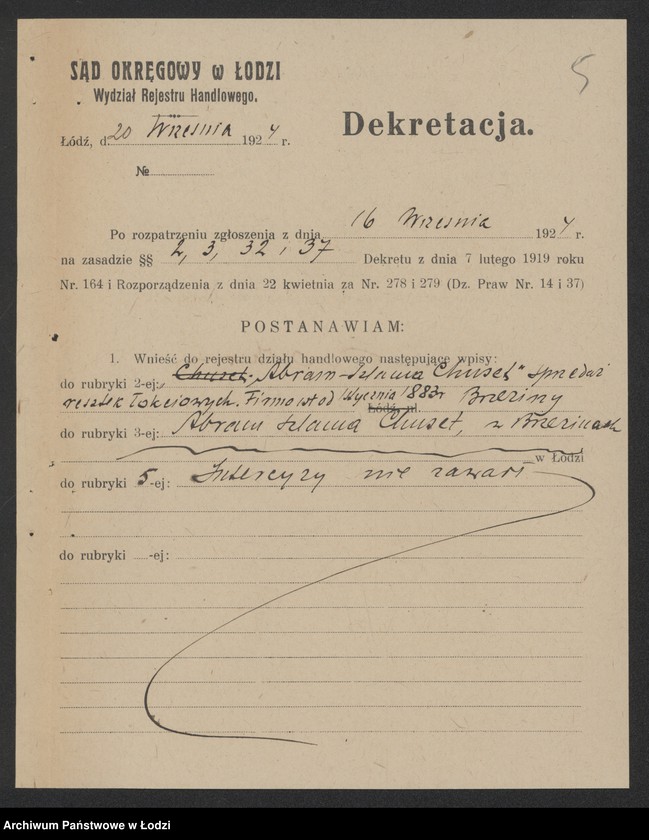 5
SĄD OKRĘGOWY w ŁODZI
Wydział Rejestru Handlowego.
Dekretacja.
Łódź, d. 20 Września 1924 r.
№
Po rozpatrzeniu zgłoszenia z dnia 16 Września 1924 r.
na zasadzie §§ 2, 3, 32 i 37 Dekretu z dnia 7 lutego 1919 roku
Nr. 164 i Rozporządzenia z dnia 22 kwietnia za Nr. 278 i 279 (Dz. Praw Nr. 14 i 37)
POSTANAWIAM:
1. Wnieść do rejestru działu handlowego następujące wpisy:
do rubryki 2-ej: Chuset, "Abram-Szlama Chuset" sprzedaż
resztek łokciowych. Firma ist. od 1883 r Brzeziny
Łódź, ul.
do rubryki 3-ej: Abram Szlama Chuset, w Brzezinach
w Łodzi
do rubryki 5-ej: Intercyzy nie zawarł
do rubryki -ej:
Archiwum Państwowe w Łodzi